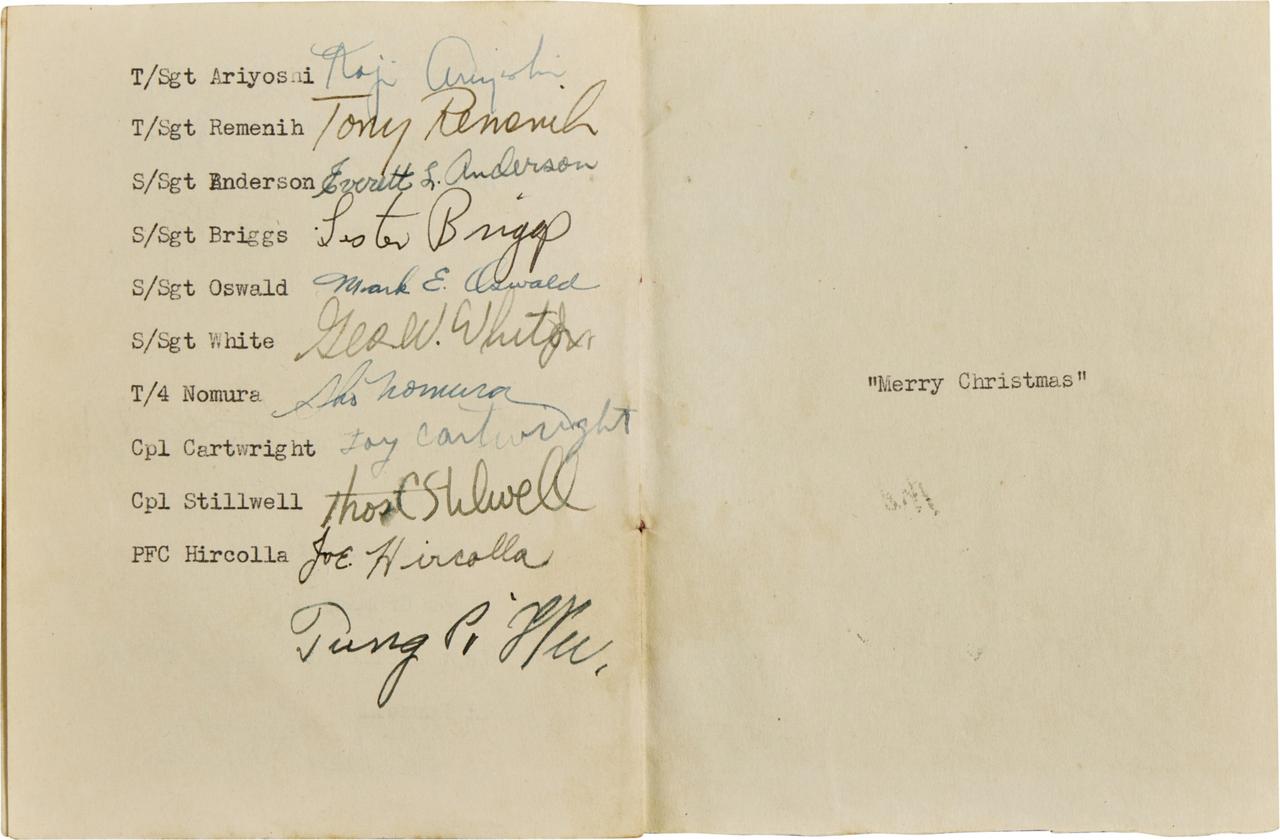 T/Sgt Ariyoshi Koji Ariyoshi
T/Sgt Remenih Tony Remenih
S/Sgt Anderson Everett L. Anderson
S/Sgt Briggs Lester Briggs
S/Sgt Oswald Mark E. Oswald
S/Sgt White Geo W. White Jr
T/4 Nomura Sho Nomura
Cpl Cartwright Loy Cartwright
Cpl Stillwell Thos C Stilwell
PFC Hircolla Joe Hircolla
Tung Pi Wu.
"Merry Christmas"